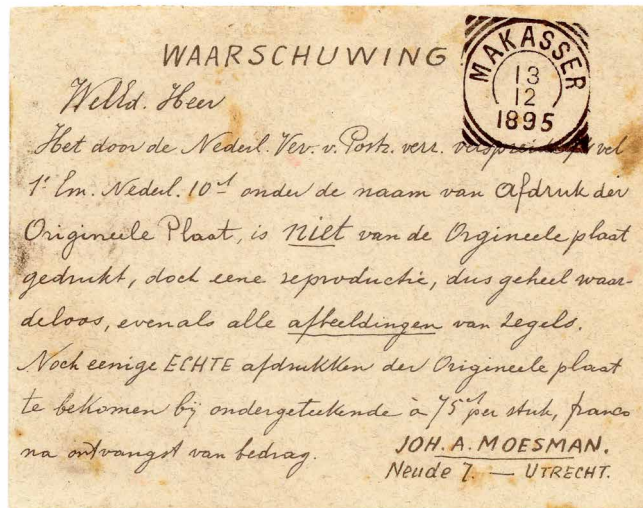 WAARSCHUWING
MAKASSER
13
12
1895
WelEd. Heer
Het door de Nederl. Ver. v. Postz. verz. verspreide vel
1e Em. Nederl. 10ct onder de naam van afdruk der
Origineele Plaat, is niet van de Orgineele plaat
gedrukt, doch eene reproductie, dus geheel waar-
deloos, evenals alle afbeeldingen van zegels.
Noch eenige ECHTE afdrukken der Origineele plaat
te bekomen bij ondergeteekende à 75ct per stuk, franco
na ontvangst van bedrag.
JOH. A. MOESMAN.
Neude 7. — UTRECHT.